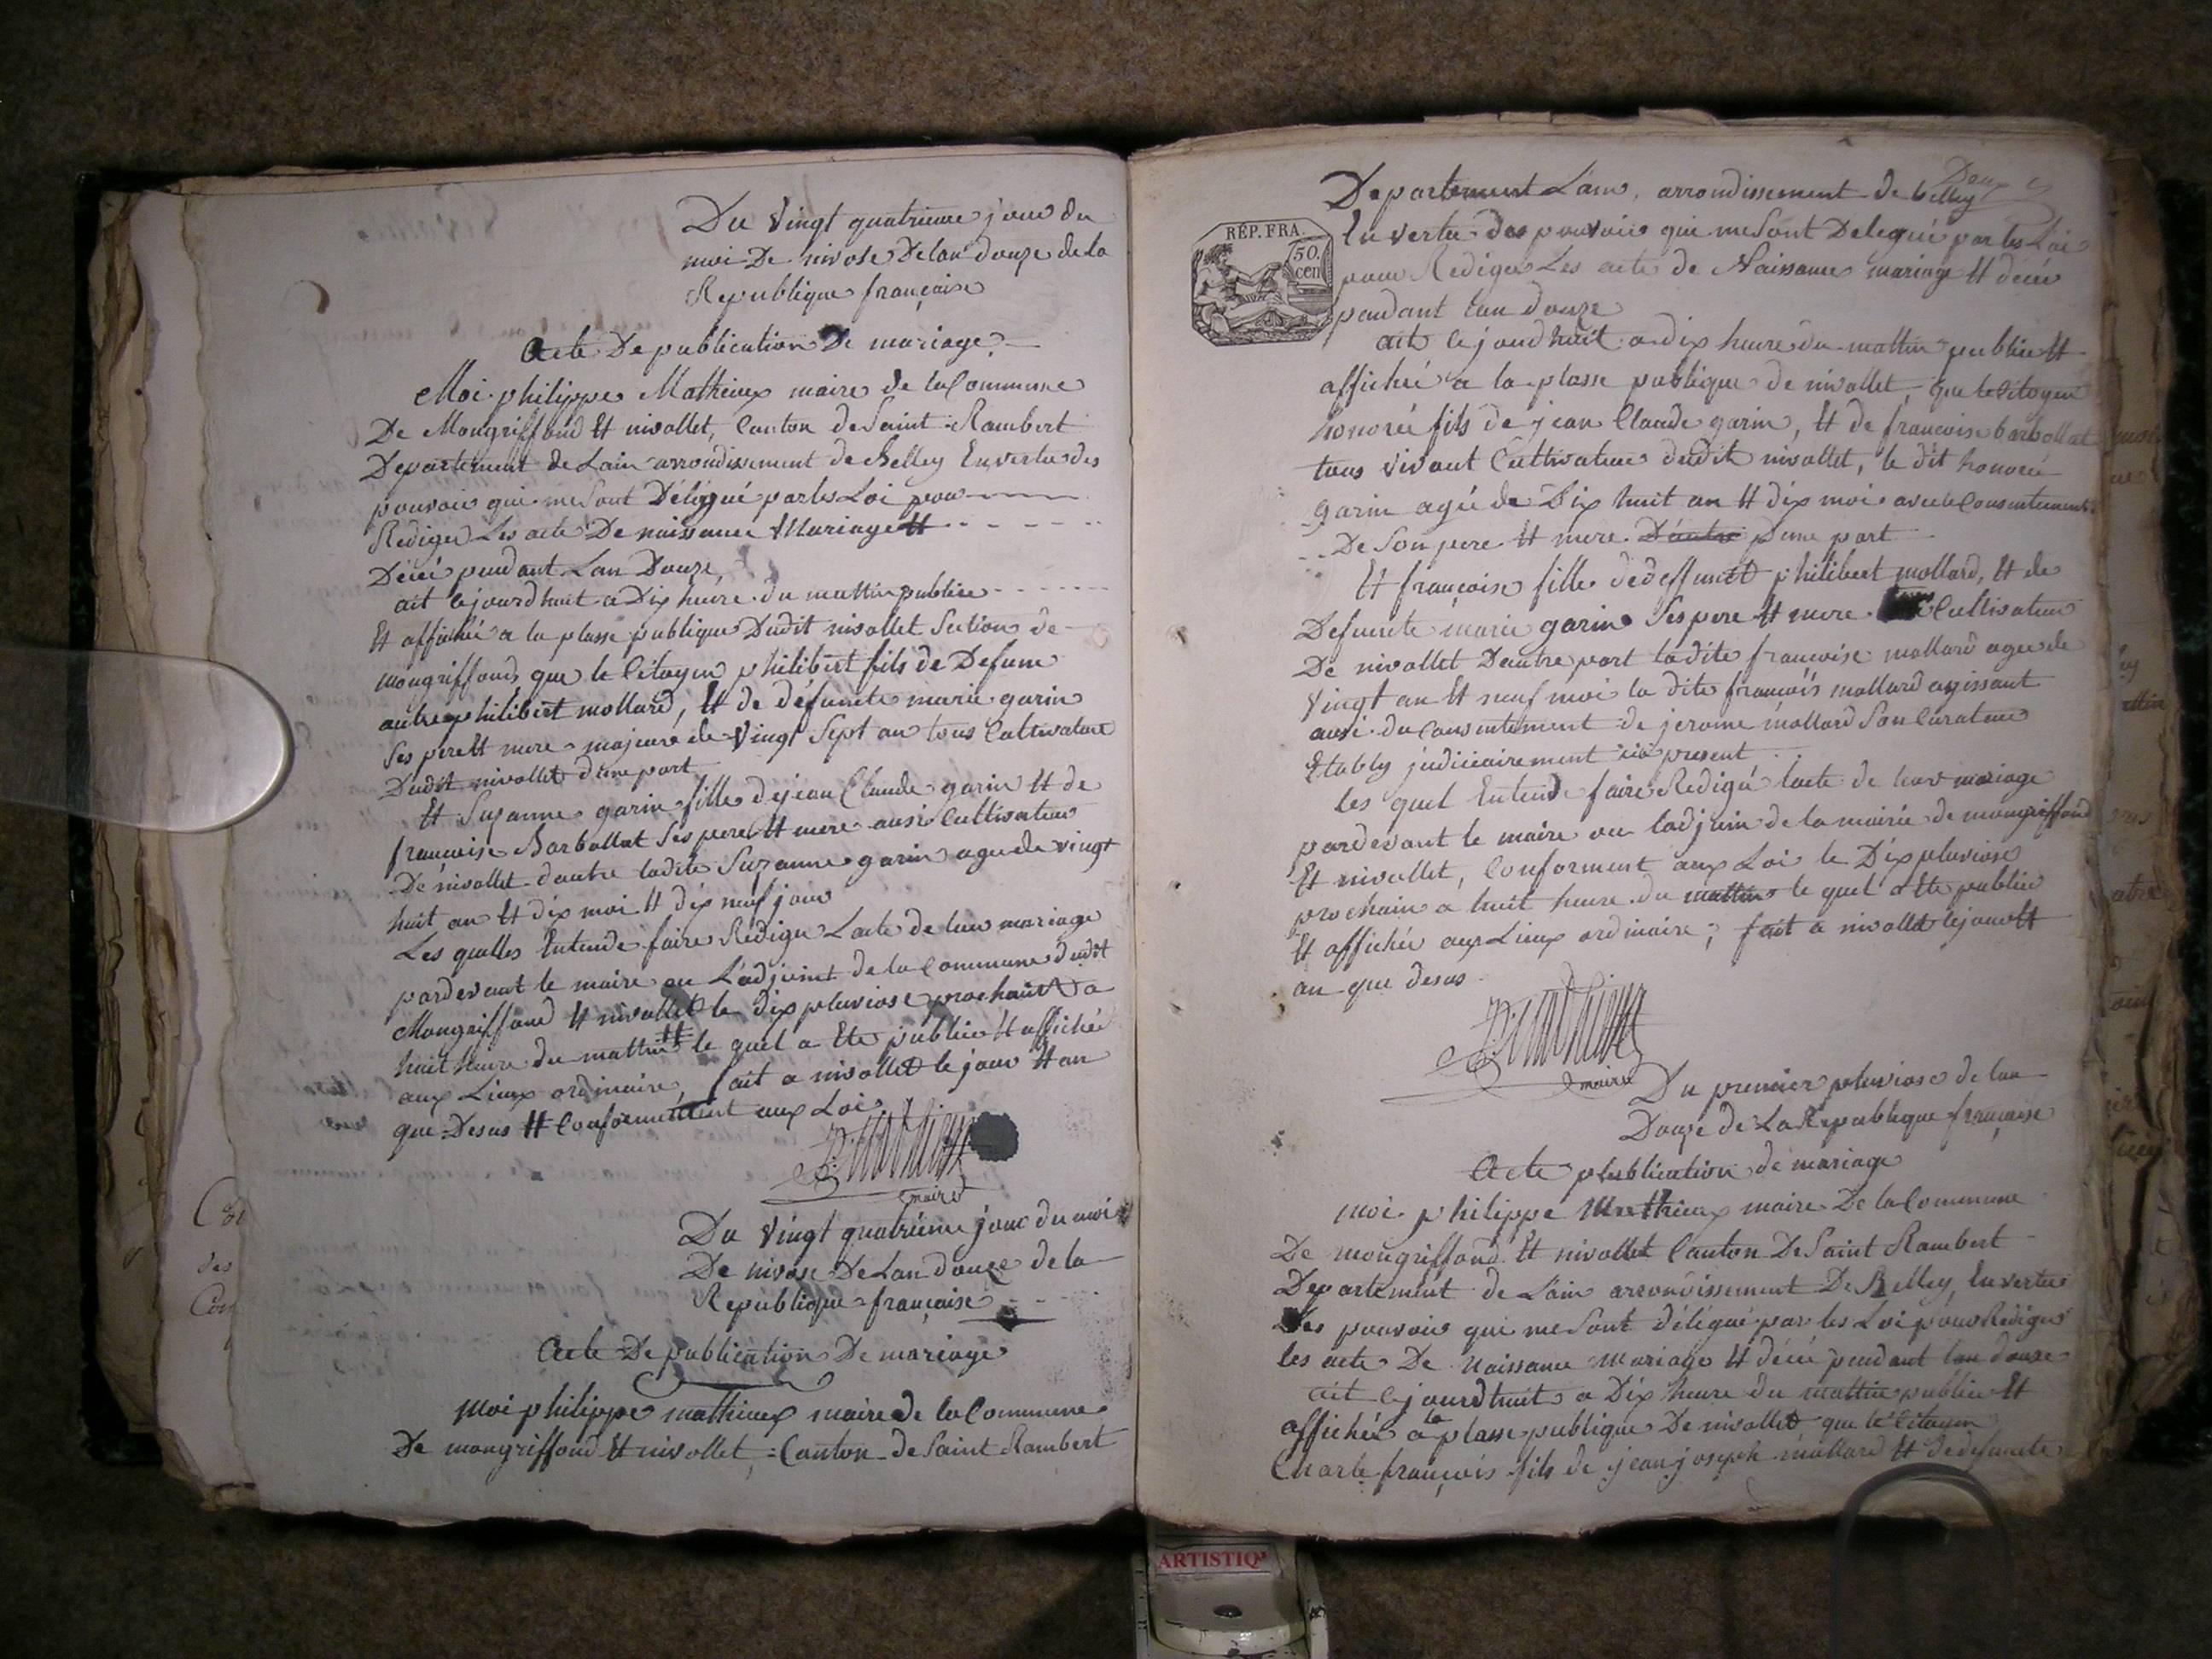 Du vingt quatrieme jour du
moi De nivose De lan douze de la
Republique françoise
Acte De publication De mariage
Moi philippe Mathieux maire de la Commune
De Mongriffond Et nivollet, Canton de Saint Rambert
Departement de Lain arrondissement de Belley En vertu des
pouvoir qui me sont Délégué par les Loi pour
Rediger Les acte De naissance Mariage Et
Décé pendant Lan Douze
ait cejourdhuit a Dix heure du mattin publiee
Et affichée a la plasse publique Dudit nivollet Section de
mongriffond que le Citoyen philibert fils de Defunt
autre philibert mollard, Et de défuncte marie garin
Ses pere Et mere majeure de Vingt Sept an tous Cultivateur
Dudit nivollet d'une part
Et Suzanne garin fille de jean Claude garin Et de
francoise Barbollat Ses pere Et mere ausi Cultivateur
De nivollet dautre ladite Suzanne garin agee de vingt
huit an Et dix moi Et dix neuf jour
Les quelles Entende faire Rediger Lacte de leur mariage
pardevant le maire ou L'adjoint de la Commune dudit
Mongriffond Et nivollet le dix pluviose prochain a
huit heure du mattin Et le quel a Ete publiée Et affichée
aux Lieux ordinaire, fait a nivollet le jour Et an
que Desus Et Conformement aux Loi
P. Mathieux
maire
Du vingt quatrième jour du moi
De nivose De Lan douze de la
Republique françoise
Acte De publication De mariage
Moi philippe mathieux maire de la Commune
De mongriffond Et nivollet, Canton de Saint Rambert
Deux
Departement Lain, arrondissement de belley
RÉP. FRA.
50.
cen
En vertu des pouvoir qui me Sont Delegué par les Loi
pour Rediger Les acte de Naissance mariage Et décée
pendant Lan douze
ait cejourdhuit a dix heure du mattin publiée Et
affichée a la plasse publique de nivollet, que le Citoyen
honoré fils de jean Claude garin, Et de francoise barbollat
tous vivant Cultivateur dudit nivollet, le dit honoré
garin agée de Dix huit an Et dix moi avec le Consentement
De Son pere Et mere D'autre D'une part
Et françoise fille de deffunct philibert mollard, Et de
Defuncte marie garin Ses pere Et mere Cultivateur
De nivollet Dautre part ladite francoise mollard agee de
Vingt an Et neuf moi la dite francois mollard agissant
ausi du Consentement de jerome mollard Son Curateur
Etably judiciairement ici present
les quel Entende faire Redigé lacte de leur mariage
pardevant le maire ou ladjoin de la mairie de mongriffond
Et nivollet, Conforment aux Loi le Dix pluviose
prochain a huit heure du mattin le quel a Ete publiée
Et affichée aux Lieux ordinaire; fait a nivollet le jour Et
an que desus
P. Mathieux
maire
Du premier pluviose de lan
Douze de La Republique françoise
Acte publication de mariage
Moi philippe Mathieux maire De la Commune
De mongriffond Et nivollet Canton De Saint Rambert
Departement de Lain arrondissement De Belley, En vertu
Des pouvoir qui me Sont délégué par les Loi pour Rediger
les acte De Naissance Mariage Et décée pendant lan douze
ait cejourdhuit a Dix heure du mattin publiée Et
affichée a la plasse publique De nivollet que le Citoyen
Charle françois fils de jean joseph mollard Et de defuncte
ARTISTIQ